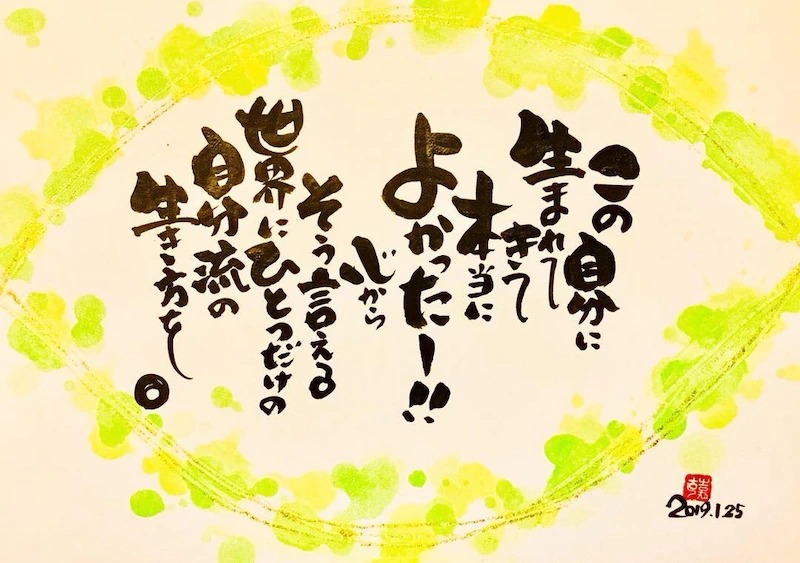 この自分に
生まれて
きて
本当に
よかったー!!
心から
そう言える
世界にひとつだけの
自分流の
生き方を。
2019.1.25